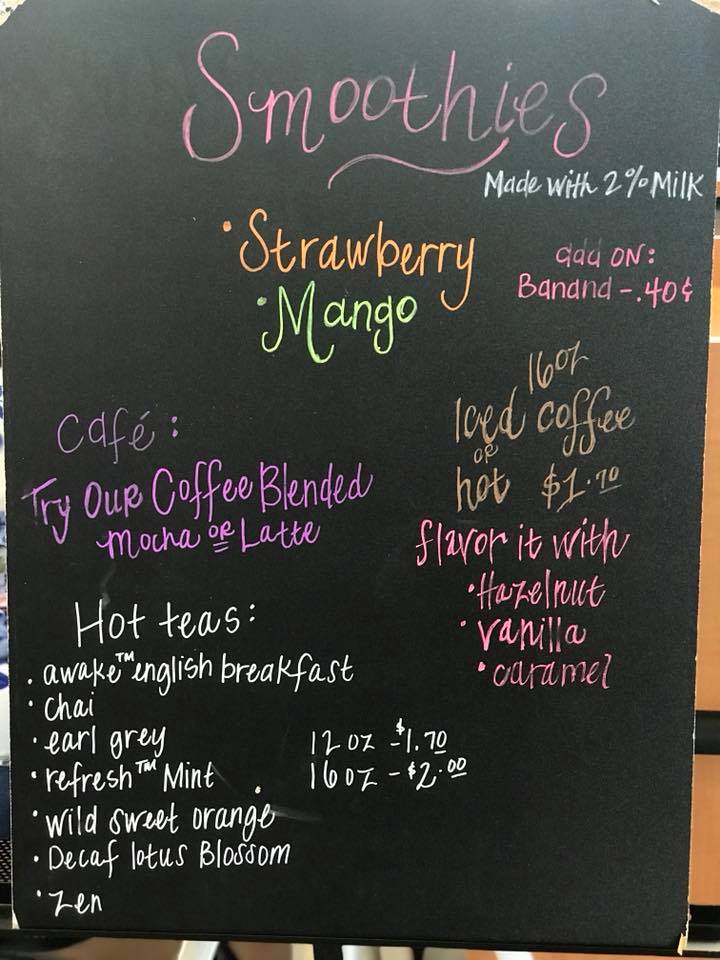 Smoothies
Made with 2% Milk
·Strawberry
·Mango
add on:
Banana - .40¢
Café:
Try Our Coffee Blended
Mocha or Latte
16oz
Iced coffee
or
hot $1.70
flavor it with
·Hazelnut
·vanilla
·caramel
Hot teas:
·awake™ english breakfast
·chai
·earl grey
·refresh™ Mint
·wild sweet orange
·Decaf lotus Blossom
·Zen
12 oz - $1.70
16 oz - $2.00